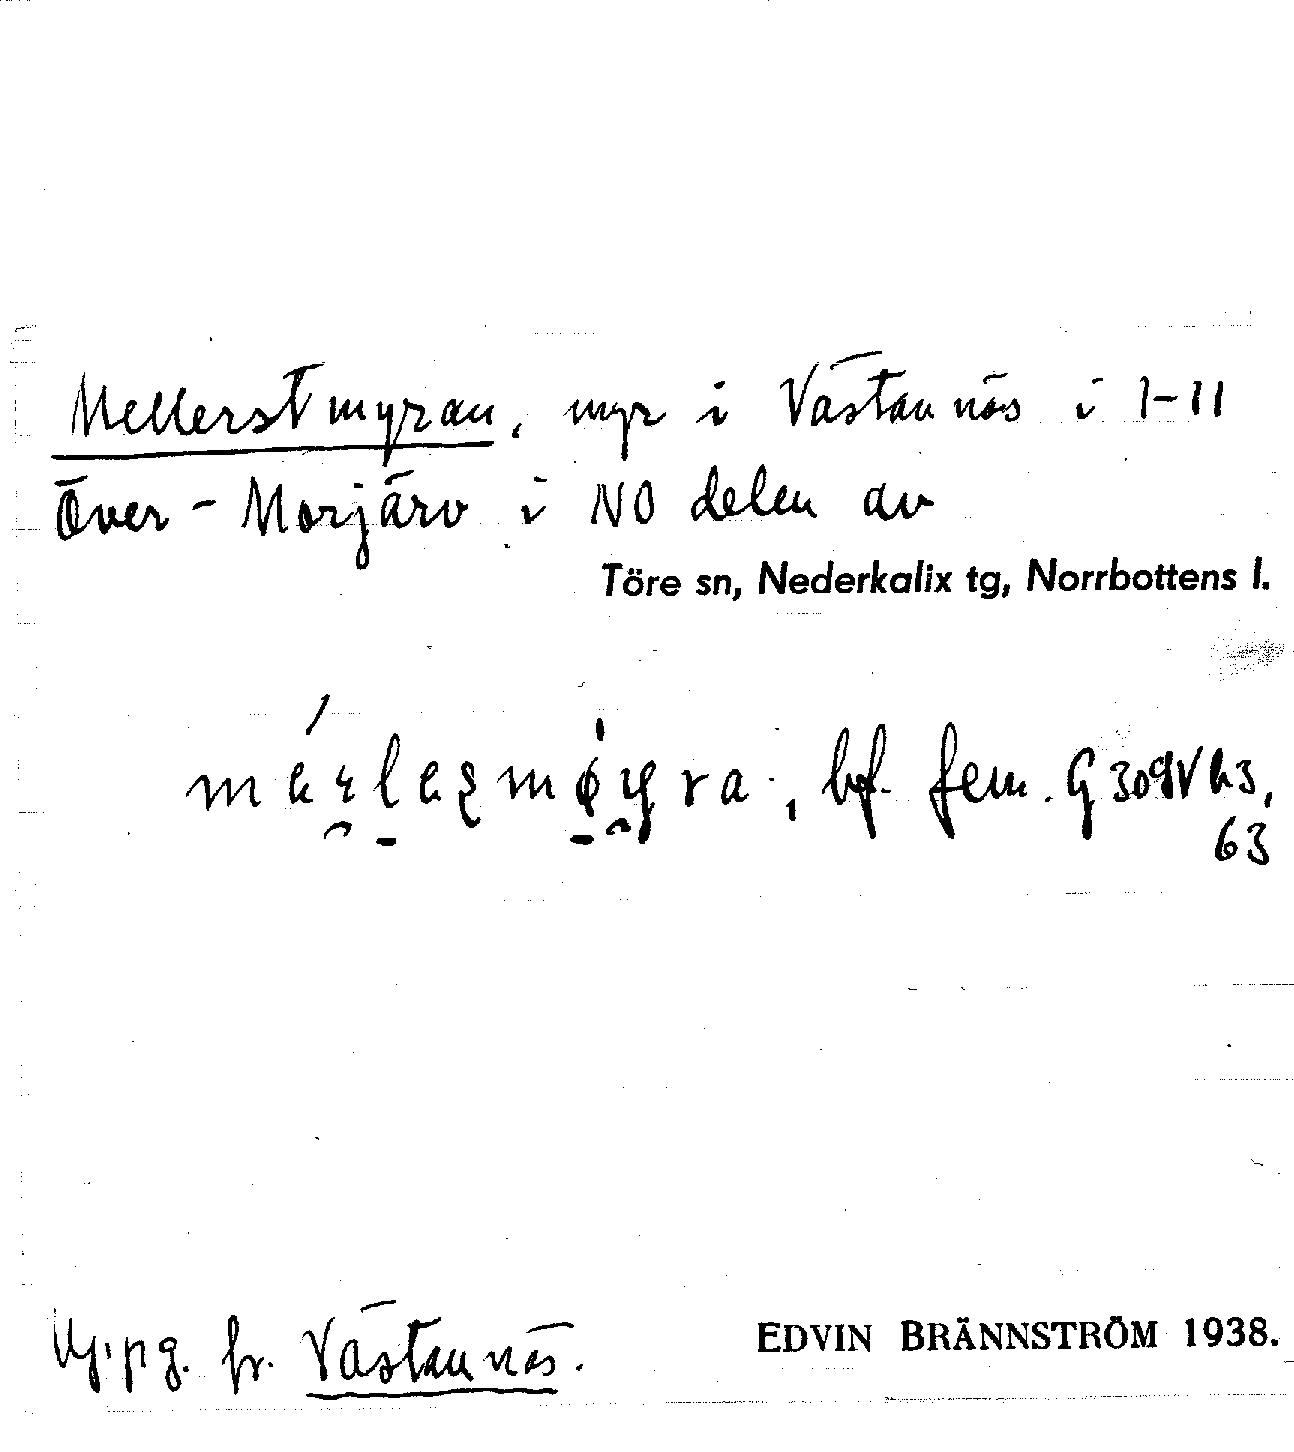 Mellerstmyran, myr i Västannäs i 1-11
Över-Morjärv i NO delen av
Töre sn, Nederkalix tg, Norrbottens l.
bf. fem. G 309V h3,
63
Uppg. fr. Västannäs.
EDVIN BRÄNNSTRÖM 1938.